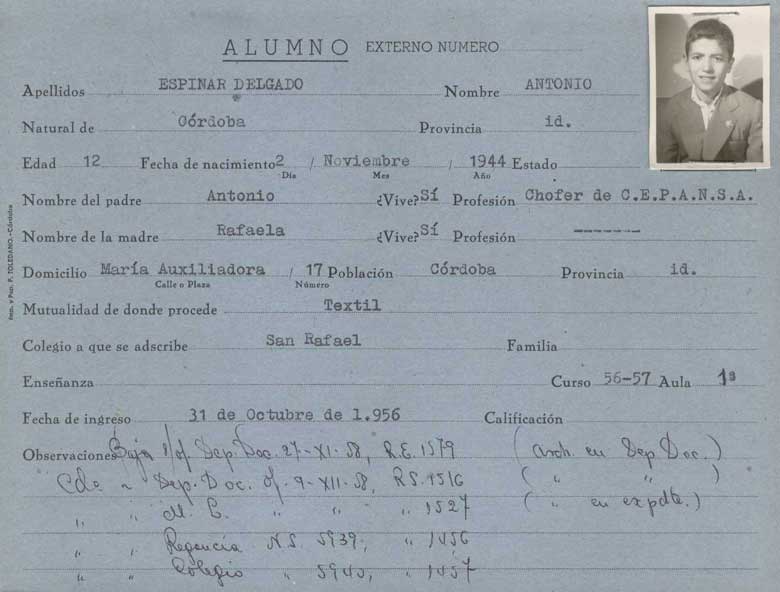 ALUMNO EXTERNO NUMERO
Apellidos ESPINAR DELGADO Nombre ANTONIO
Natural de Córdoba Provincia id.
Edad 12 Fecha de nacimiento 2 / Noviembre / 1944 Estado
Día Mes Año
Nombre del padre Antonio ¿Vive? Sí Profesión Chofer de C.E.P.A.N.S.A.
Nombre de la madre Rafaela ¿Vive? Sí Profesión ----
Domicilio María Auxiliadora / 17 Población Córdoba Provincia id.
Calle o Plaza Número
Mutualidad de donde procede Textil
Colegio a que se adscribe San Rafael Familia
Enseñanza Curso 56-57 Aula 1ª
Fecha de ingreso 31 de Octubre de 1.956 Calificación
Observaciones Baja s/of. Dep. Doc. 27-XI-58, R.E. 1579 (arch. en Dep Doc.)
Cde a Dep. Doc. of. 9-XII-58, RS. 1516 ( " " )
" " M. L. " " " 1527 ( " en expdte.)
" " Regencia N.S. 5939, " 1456
" " Colegio " 5940, " 1457
TOLEDANO.-Córdoba